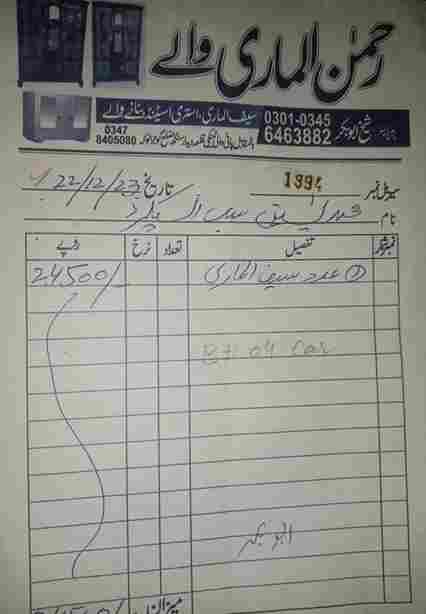 رحمٰن الماری والے
سیف الماری، استری اسٹینڈ بنانے والے
شیخ ابوبکر
0301-0345
6463882
0347
8405080
سیریل نمبر 1994
تاریخ 22/12/23
نام محمد صدیق سب انسپکٹر
نمبر شمار تفصیل تعداد نرخ روپے
① عدد سیف الماری 24500/-
ابوبکر
میزان